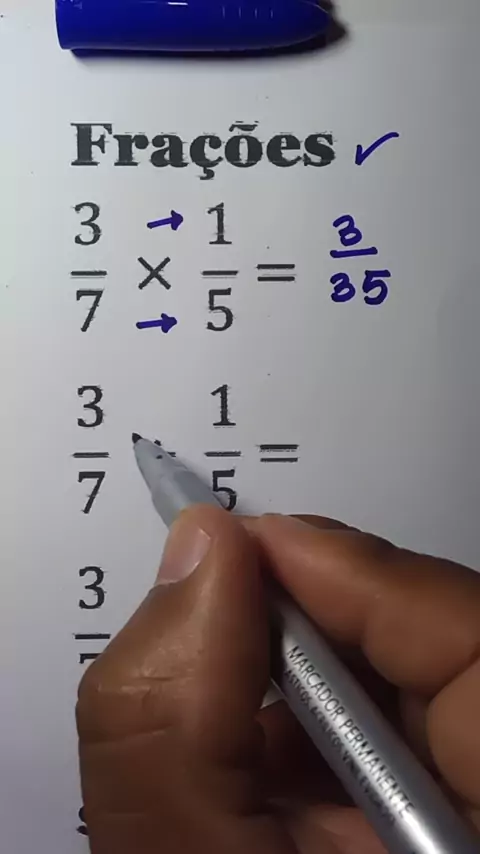 Frações ✓
3/7 × 1/5 = 3/35
3/7 1/5 =
3
MARCADOR PERMANENTE